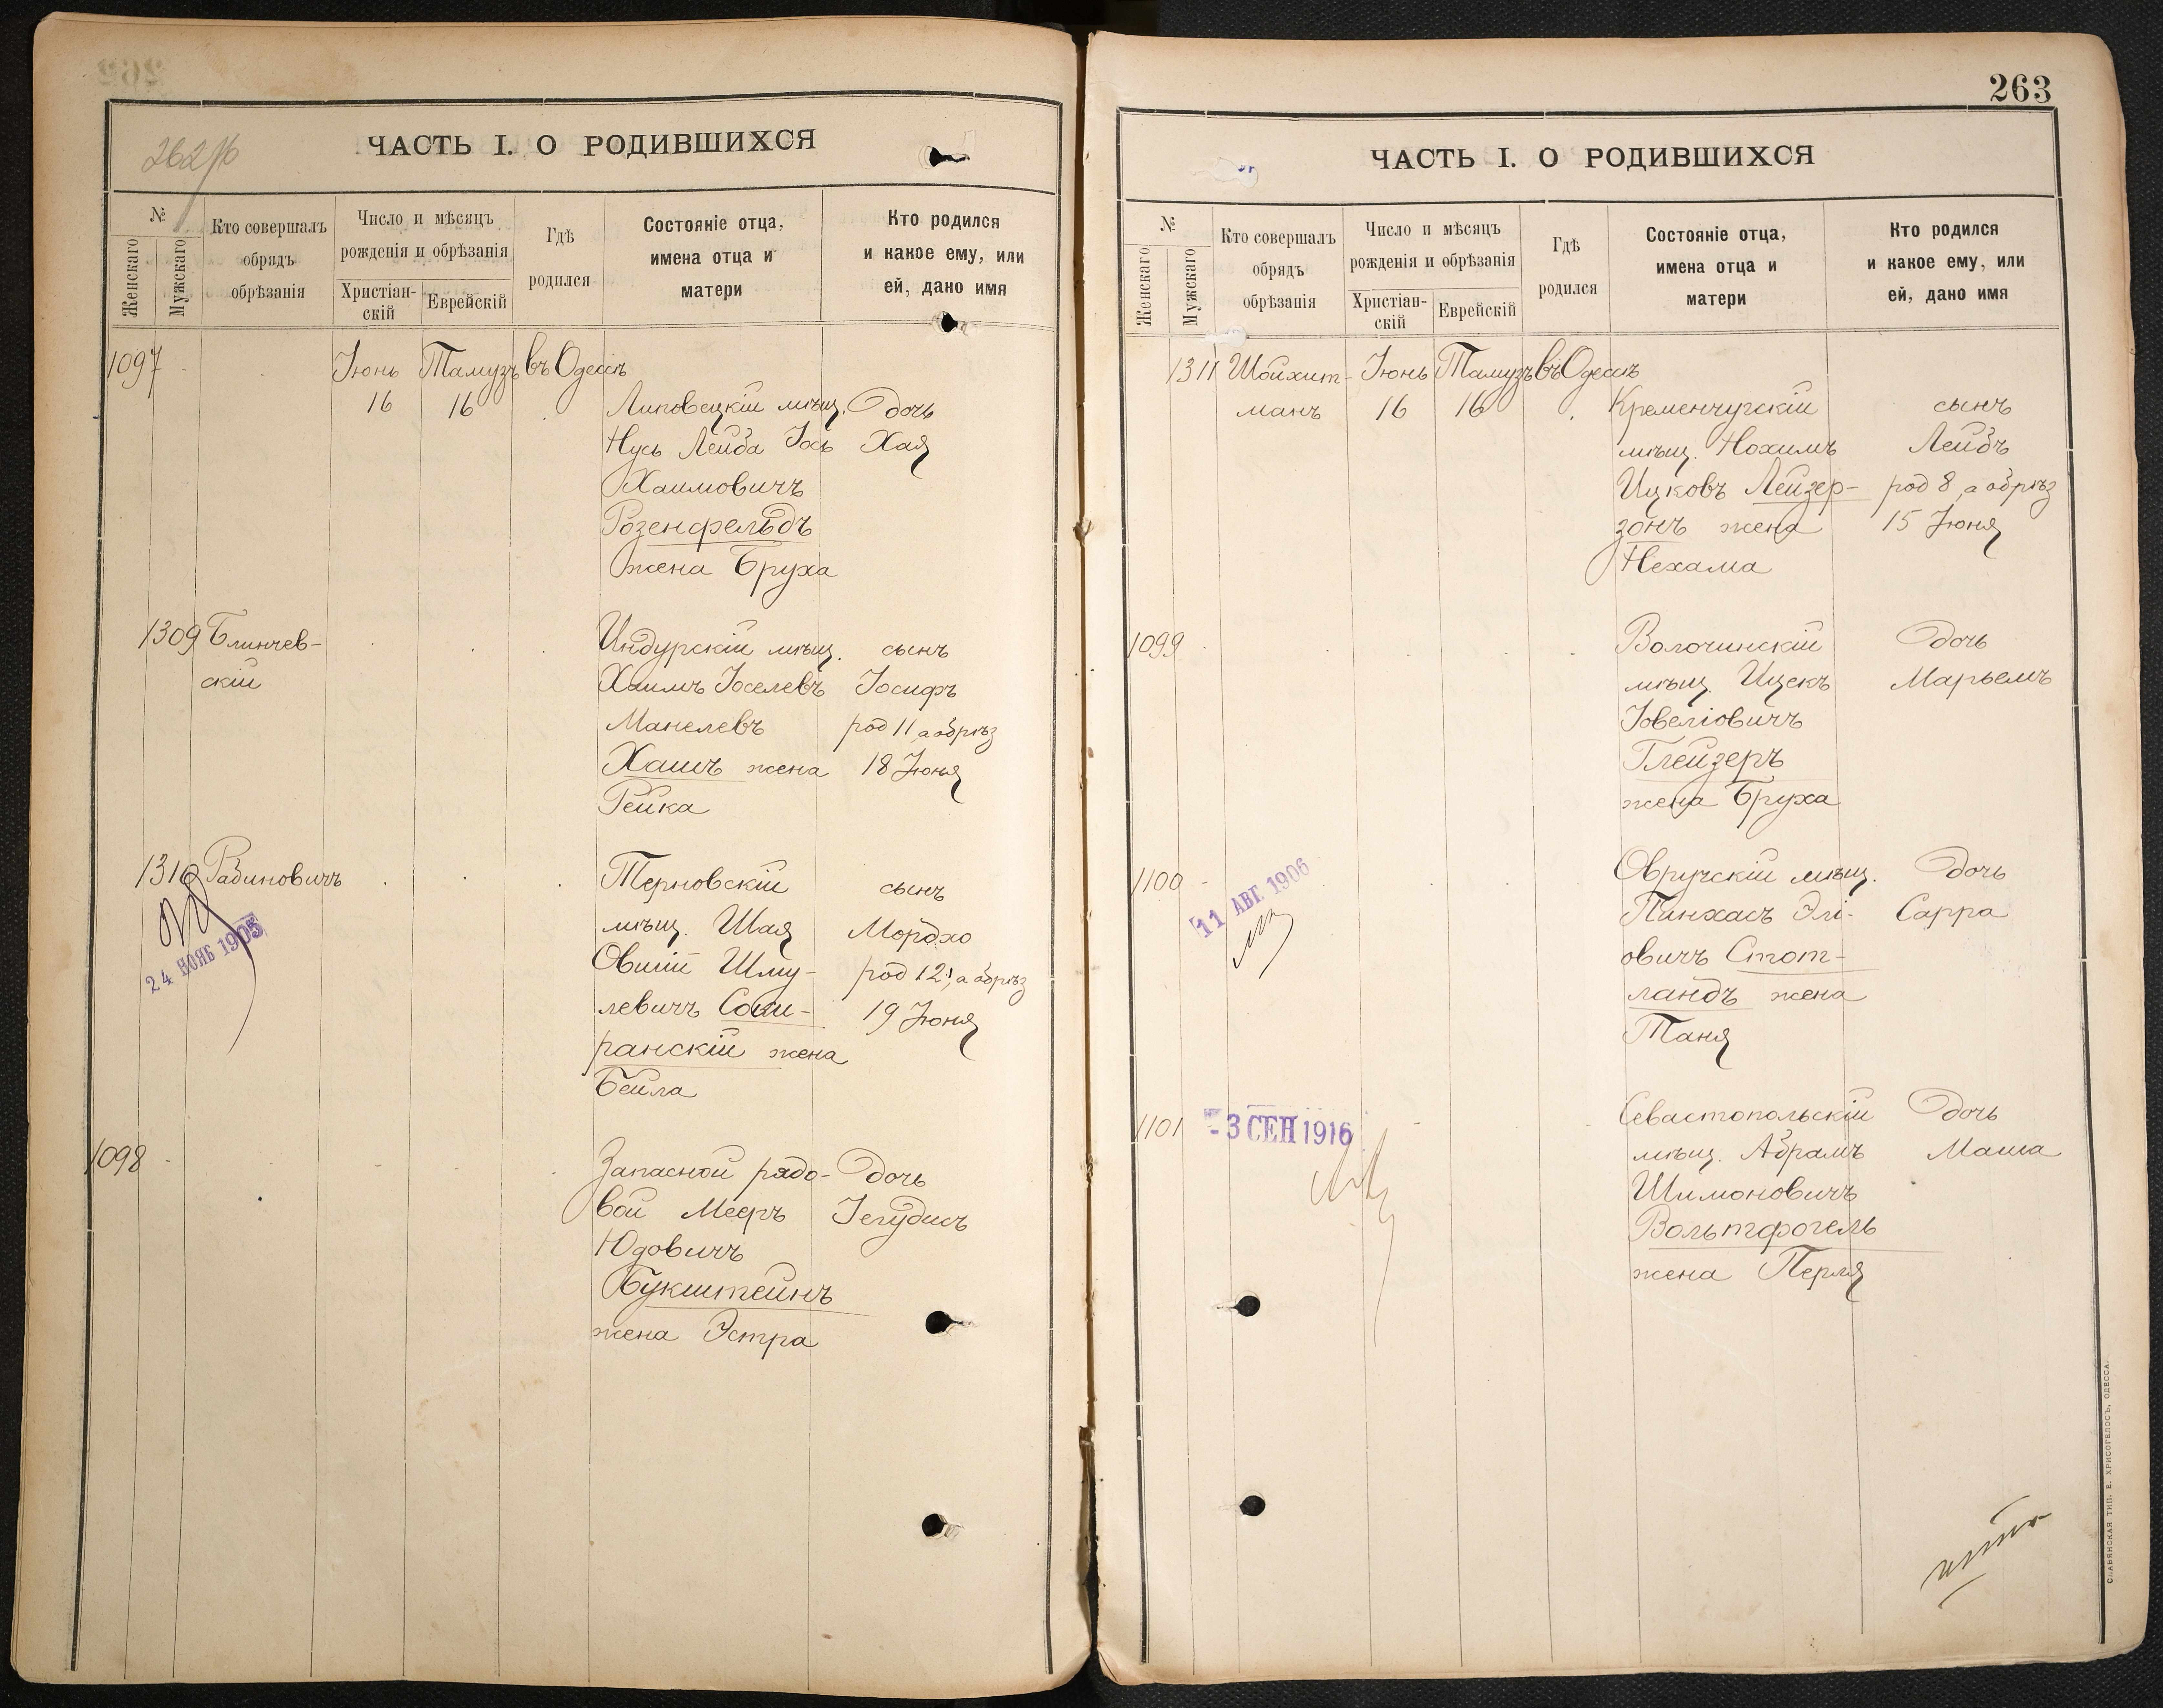 262 об
ЧАСТЬ I. О РОДИВШИХСЯ
№
Женскаго
Мужскаго
Кто совершалъ
обрядъ
обрѣзанія
Число и мѣсяцъ
рожденія и обрѣзанія
Христіан-
скій
Еврейскій
Гдѣ
родился
Состояніе отца,
имена отца и
матери
Кто родился
и какое ему, или
ей, дано имя
1097 Іюнь Тамузъ въ Одессѣ
16 16 Липовецкій мѣщ. дочь
Нусь Лейба Іось Хая
Хаимовичъ
Розенфельдъ
жена Бруха
1309 Блинчев- Индурскій мѣщ. сынъ
скій Хаимъ Іоселевъ Іосифъ
Манелевъ род 11 а обрѣз
Хашъ жена 18 Іюня
Рейка
1310 Рабиновичъ Терновскій сынъ
мѣщ. Шая Мордхо
24 НОЯБ 1905
Овшій Шму- род 12, а обрѣз
левичъ 19 Іюня
ранскій жена
Бейла
1098 Запасной рядо- дочь
вой Мееръ Іегудись
Юдовичъ
Букштейнъ
жена Эстра
263
ЧАСТЬ I. О РОДИВШИХСЯ
№
Женскаго
Мужскаго
Кто совершалъ
обрядъ
обрѣзанія
Число и мѣсяцъ
рожденія и обрѣзанія
Христіан-
скій
Еврейскій
Гдѣ
родился
Состояніе отца,
имена отца и
матери
Кто родился
и какое ему, или
ей, дано имя
1311 Шойхит- Іюнь Тамузъ въ Одессѣ
манъ 16 16 Кременчугскій сынъ
мѣщ. Нохимъ Лейбъ
Ицковъ Лейзер- род 8 а обрѣз
зонъ жена 15 Іюня
Нехама
1099 Волочинскій дочь
мѣщ. Ицекъ Марьемъ
Іовеліовичъ
Глейзеръ
жена Бруха
1100 Овручскій мѣщ. дочь
11 АВГ. 1906
Пинхасъ Элі- Сарра
овичъ Стот-
ландъ жена
Таня
1101 Севастопольскій дочь
- 3 СЕН 1916
мѣщ. Абрамъ Маша
Шимоновичъ
Вольтфогель
жена Перля
СЛАВЯНСКАЯ ТИП. Е. ХРИСОГЕЛОСЪ, ОДЕССА.